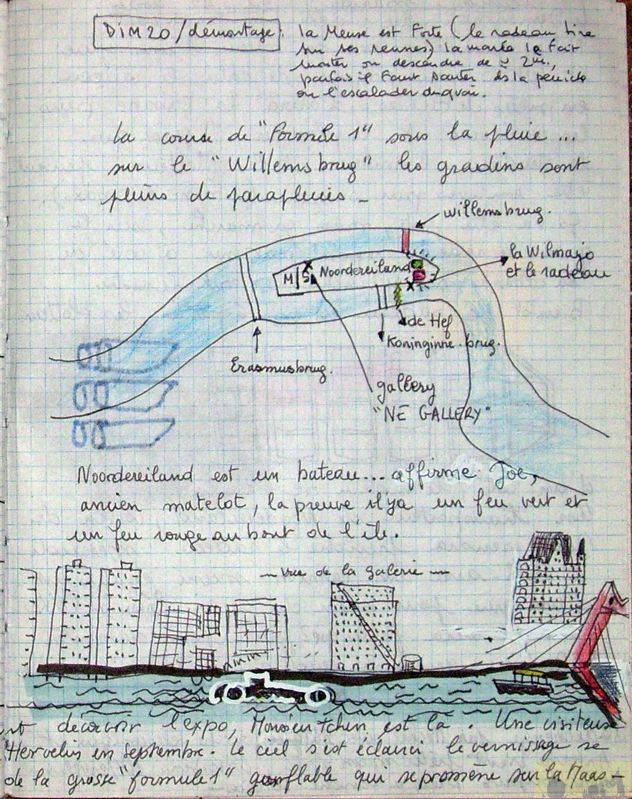 DIM 20 / démontage.
la Meuse est forte (le radeau tire
sur ses rennes) la marée le fait
monter ou descendre de ≃ 2m.,
parfois il faut sauter ds la péniche
ou l'escalader du quai.
La course de "Formule 1" sous la pluie...
sur le "Willemsbrug" les gradins sont
pleins de parapluies _
Willemsbrug.
M/S Noordereiland
la Wilmajo
et le radeau
de Hef
Koninginne-brug.
Erasmusbrug.
gallery
"NE GALLERY"
Noordereiland est un bateau... affirme Joe,
ancien matelot, la preuve il y a un feu vert et
un feu rouge au bout de l'île.
— vue de la galerie —
découvrir l'expo, Monsieur Tchin est là. Une visiteuse
Hervelin en septembre. Le ciel s'est éclairci le vernissage se
de la grosse "formule 1" gonflable qui se promène sur la Maas _